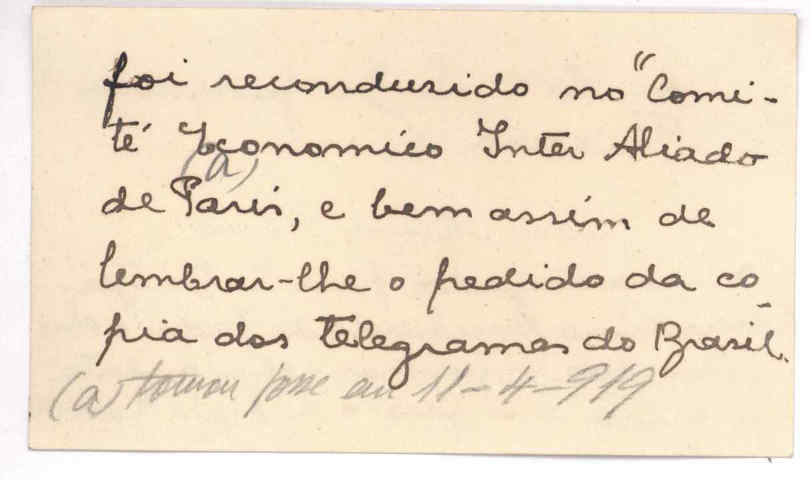 foi reconduzido no "Comi-
té Economico Inter Aliado
(a)
de Paris, e bem assim de
lembrar-lhe o pedido da co-
pia dos telegramas do Brasil.
(a) tomou posse em 11-4-919